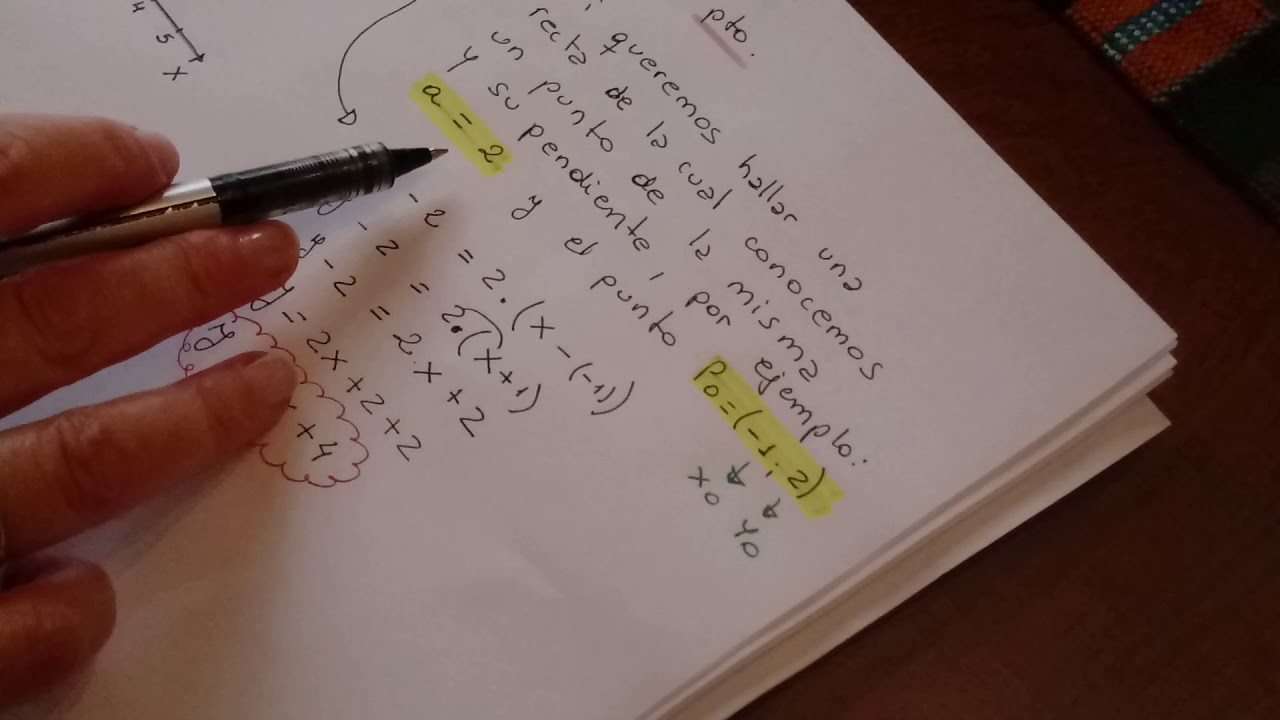 4
5
x
pto.
queremos hallar una
recta de la cual conocemos
un punto de la misma
y su pendiente, por ejemplo:
a = 2 y el punto P0 = (-1; 2)
x0 y0
- 2 = 2.(x - (-1))
y - 2 = 2.(x+1)
y - 2 = 2.x + 2
y = 2x + 2 + 2
y
+4